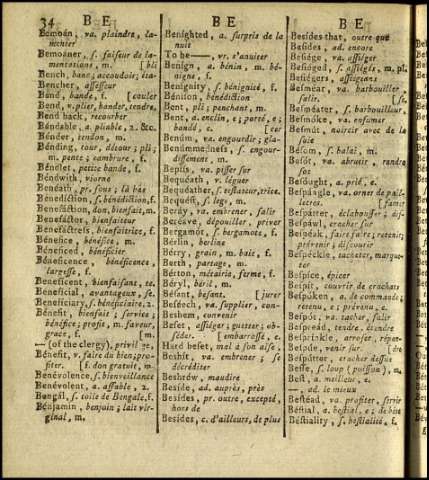 34 B E
B E
B E
Bemoán, va. plaindre, la-
menter
Bemoáner, s. faiseur de la-
mentations, m. [bli
Bench, banc; accoudoir; éta-
Béncher, assesseur
Bend, bande, f. [couler
Bend, v. plier, bander, tendre,
Bend back, recourber
Béndable, a. pliable, 2. &c.
Bénder, tendon, m.
Bénding, tour, détour; pli;
m. pente; cambrure, f.
Béndlet, petite bande, f.
Béndwith, viorne
Beneáth, pr. sous; là bas
Benedíction, s. bénédiction, f.
Benefáction, don, bienfait, m.
Benefáctor, bienfaiteur
Benefáctress, bienfaitrice, f.
Bénefice, bénéfice, m.
Béneficed, bénéficier
Beneficence, bénéficence,
largesse, f.
Beneficent, bienfaisant, te.
Beneficial, avantageux, se.
Beneficiary, s. bénéficiaire, 2.
Bénefit, bienfait; service;
bénéfice; profit, m. faveur,
grace, f. [m.
— (of the clergy), privilège,
Bénefit, v. faire du bien; pro-
fiter. [f. don gratuit, m.
Benévolence, s. bienveillance
Benévolent, a. affable, 2.
Bengál, s. toile de Bengale, f.
Bénjamin, benjoin; lait vir-
ginal, m.
Benighted, a. surpris de la
nuit
To be——, vr. s'anuiter
Benign, a. bénin, m. bé-
nigne, f.
Benignity, s. bénignité, f.
Bénison, bénédiction
Bent, pli; penchant, m.
Bent, a. enclin, e; porté, e;
bandé, e. [cer
Benúm, va. engourdir; gla-
Benúmmedness, s. engour-
dissement, m.
Bepiss, va. pisser sur
Bequéath, v. léguer
Bequéather, s. testateur, trice.
Bequést, s. legs, m.
Beráy, va. embrener, salir
Beréave, dépouiller, priver
Bergamót, s. bergamote, f.
Bérlin, berline
Bérry, grain, m. baie, f.
Berth, partage, m.
Bérton, métairie, ferme, f.
Béryl, béril, m.
Bésant, besant, [jurer
Beseéch, va. supplier, con-
Beséem, convenir
Beset, assiéger, guetter; ob-
séder. [embarrassé, e.
Hard beset, mal à son aise;
Beshit, va. embrener; se
décréditer
Beshréw, maudire
Beside, ad. auprès, près
Besides, pr. outre, excepté,
hors de
Besides, c. d'ailleurs, de plus
Besides that, outre que
Besides, ad. encore
Besiége, va. assiéger
Besiéged, s. assiégés, m. pl.
Besiégers, assiégeans
Besméar, va. barbouiller,
salir. [se.
Besméater, s. barbouilleur,
Besmóke, va. enfumer
Besmút, noircir avec de la
suie
Bésom, s. balai, m.
Besót, va. abrutir, rendre
sot
Besóught, a. prié, e.
Bespángle, va. orner de pail-
lettes. [famer
Bespátter, éclabousser; dif-
Bespáwl, cracher sur
Bespéak, faire faire; retenir;
prévenir; discourir
Bespéckle, tacheter, marque-
ter
Bespíce, épicer
Bespít, couvrir de crachats
Bespóken, a. de commande;
retenu, e; prévenu, e.
Bespót, va. tacher, salir
Bespréad, tendre, étendre
Besprinkle, arroser, répan-
Bespútter, cracher dessus
Besse, s. loup (poisson), m.
Best, a. meilleur, e.
—— ad. le mieux
Bestéad, va. profiter, servir
Béstial, a. bestial, e; de bête
Bestiálity, s. bestialité, f.